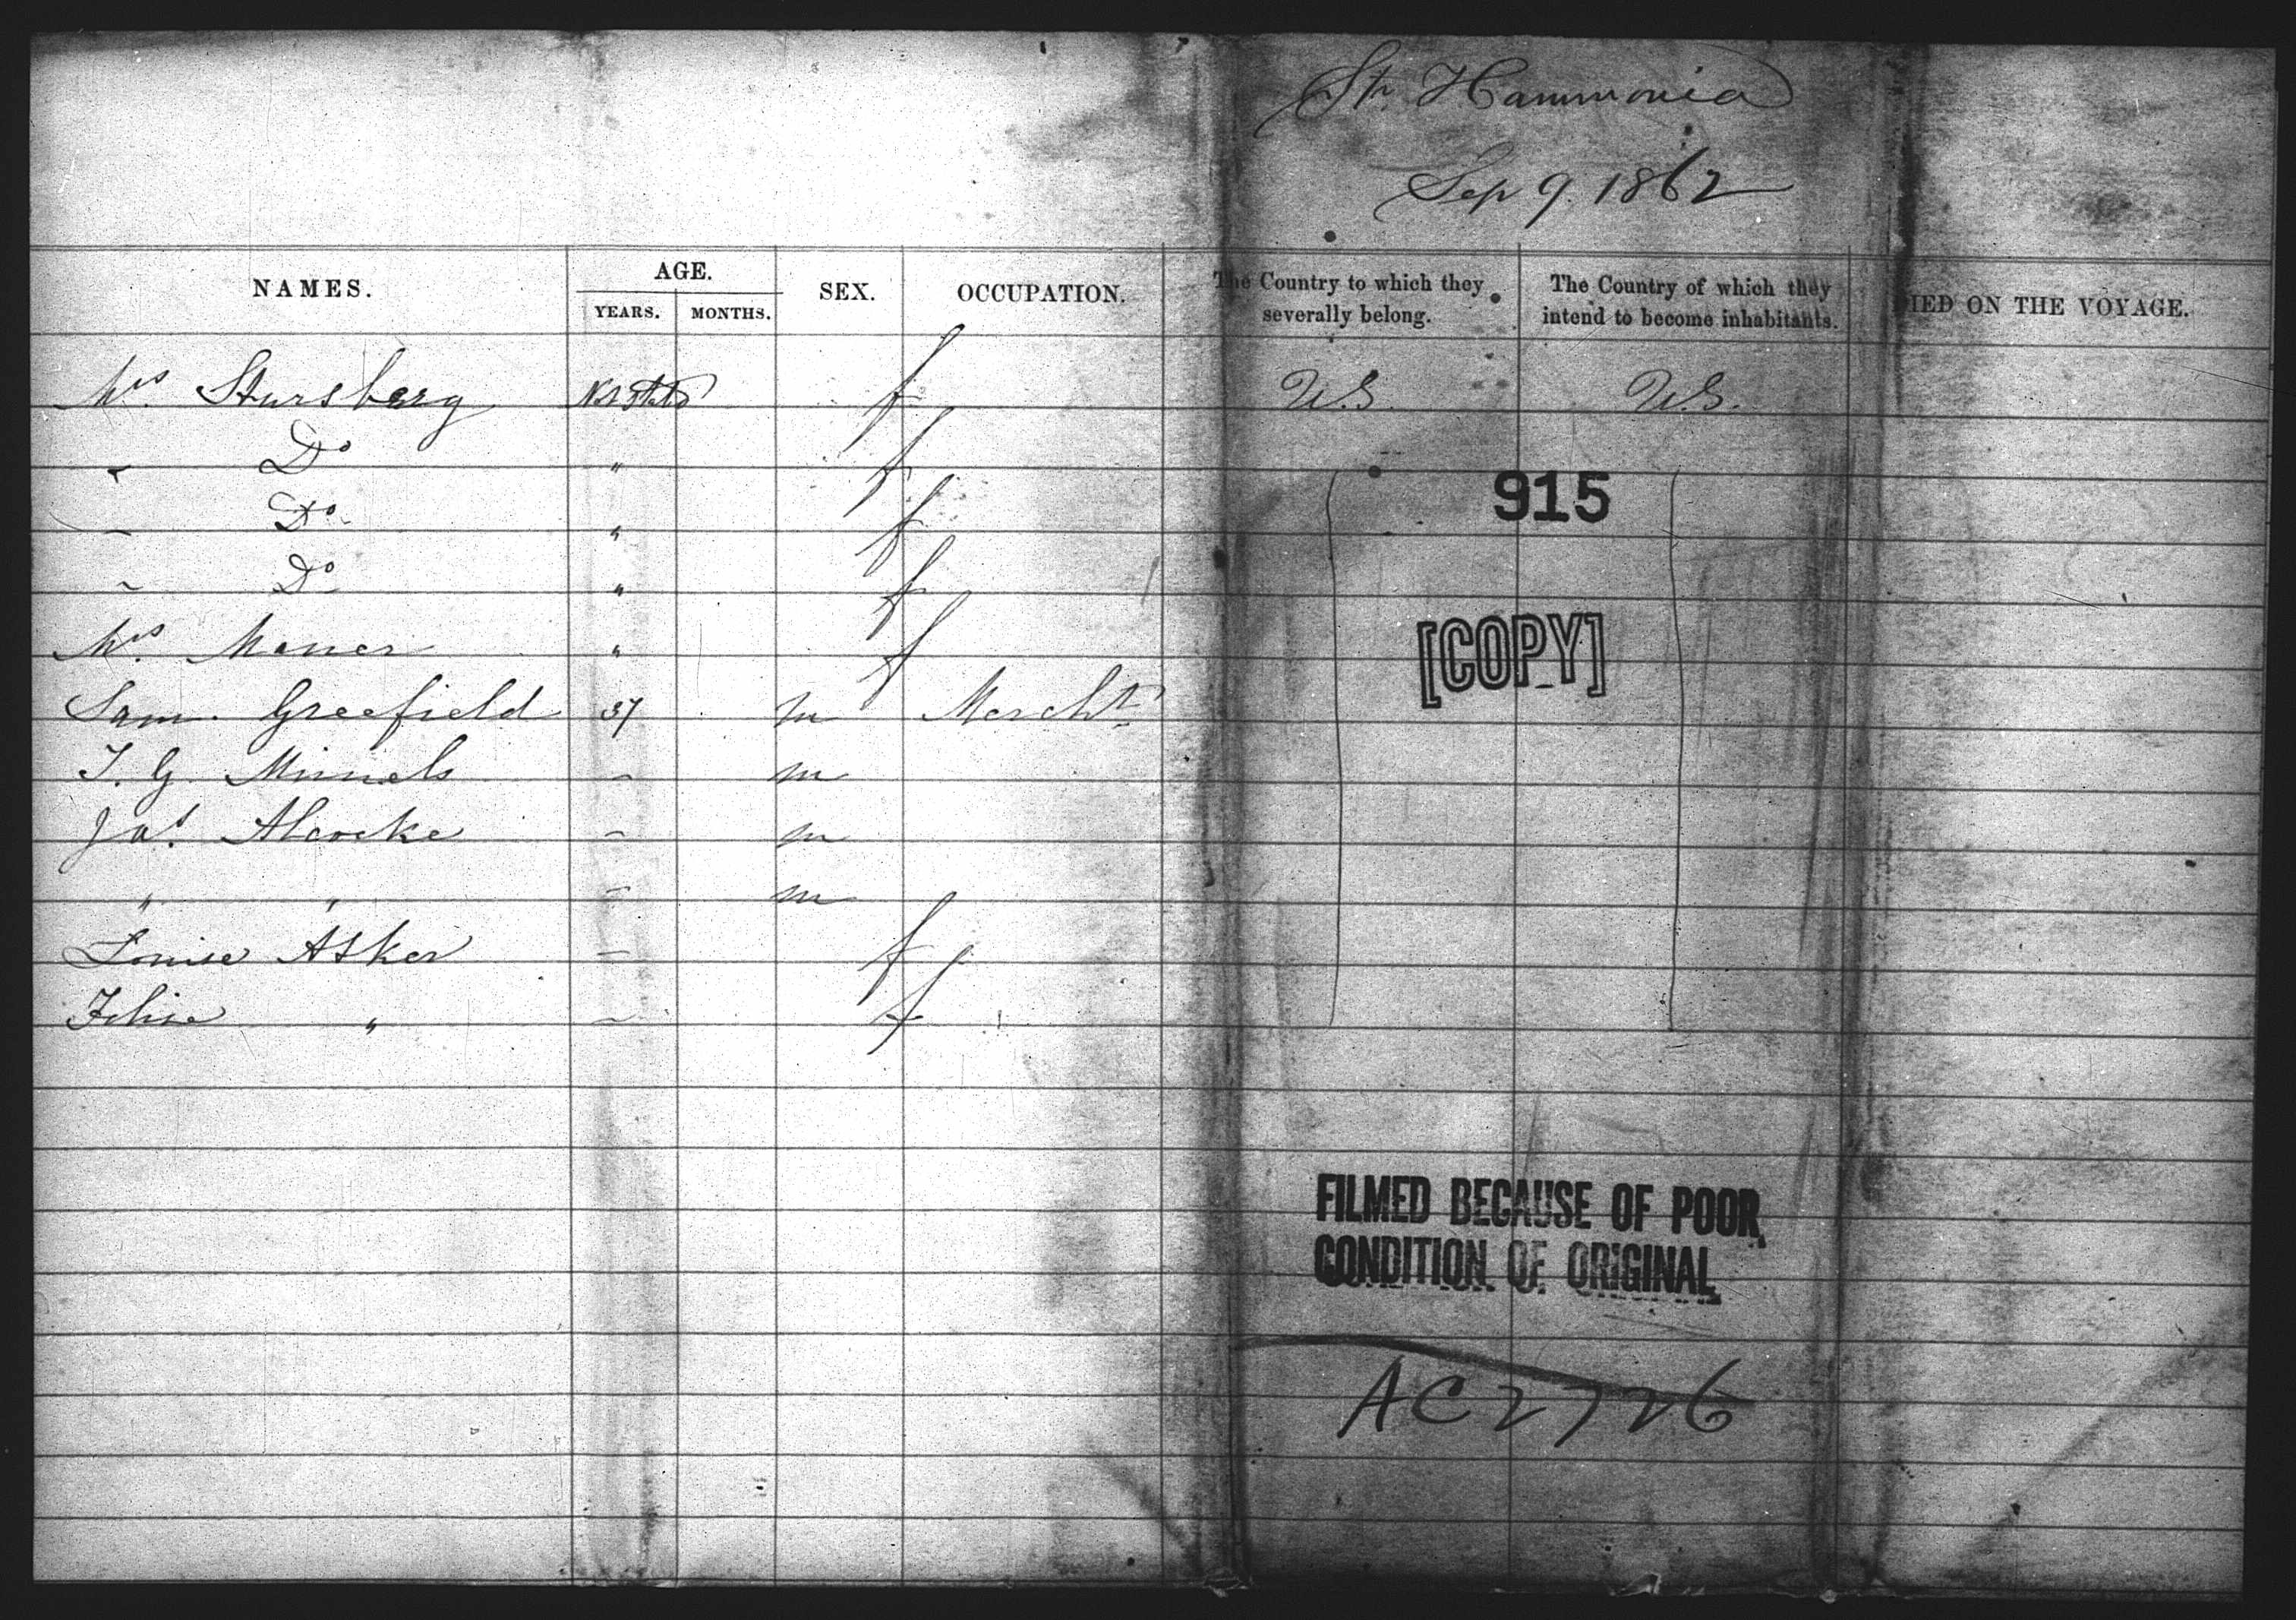 Str. Hammonia
Sep 9. 1862
NAMES. AGE. YEARS. MONTHS. SEX. OCCUPATION. The Country to which they severally belong. The Country of which they intend to become inhabitants. DIED ON THE VOYAGE.
Mrs. Stursberg Not Stated f U.S. U.S.
" Do " f
" Do " f
" Do " f
Mrs. f
Sam. Greefield 37 m Mercht
T. G. - m
Jas. Alcocke - m
" " - m
Louise Asker - f
" - f
915
[COPY]
FILMED BECAUSE OF POOR
CONDITION OF ORIGINAL
AC 2726